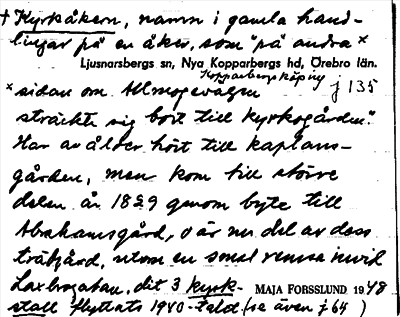 + Kyrkåkern, namn i gamla hand-
lingar på en åker, som "på andra x
Ljusnarsbergs sn, Nya Kopparbergs hd, Örebro län.
Kopparbergs köping
x sidan om Allmogevägen j 135
sträckte sig bort till kyrkogården".
Har av ålder hört till kaplans-
gården, men kom till större
delen år 1859 genom byte till
Abrahamsgård, o är nu del av dess
trädgård, utom en smal remsa invid
Laxbrogatan, dit 3 kyrk-
MAJA FORSSLUND 1948
stall flyttats 1940-talet. (se även j 64)